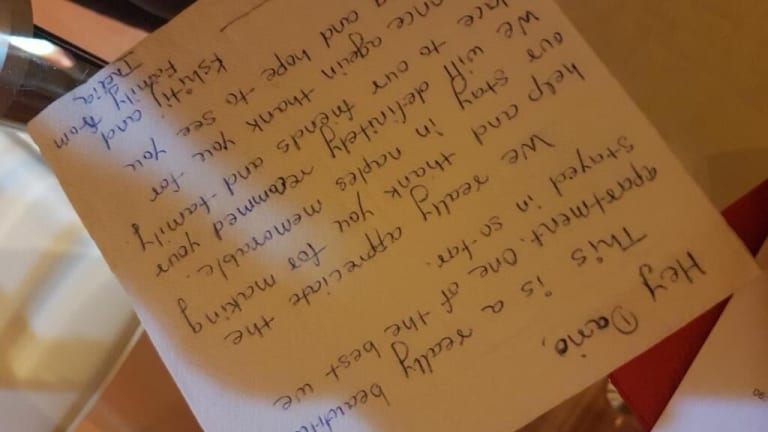 Hey Dario,
This is a really
apartment. One of the best we
stayed in so far.
We really appreciate the
help and thank you for making
our stay in naples memorable.
We will definitely recommed your
to our friends and family.
again thank you for
and hope to see you
Kshitij and
Family from
India